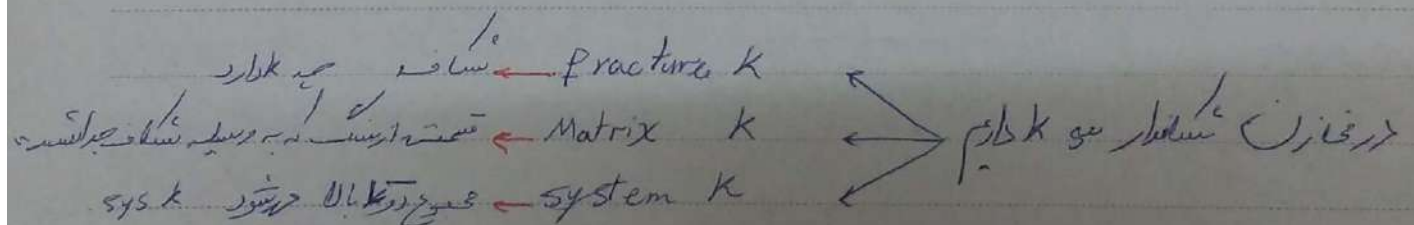 در مخازن شکافدار سه k داریم
fracture K ← شکاف چه k دارد
Matrix K ← قسمتی از سنگ که به وسیله شکاف جدا شده
system K ← مجموع دو تا k بالا می‌شود sys k